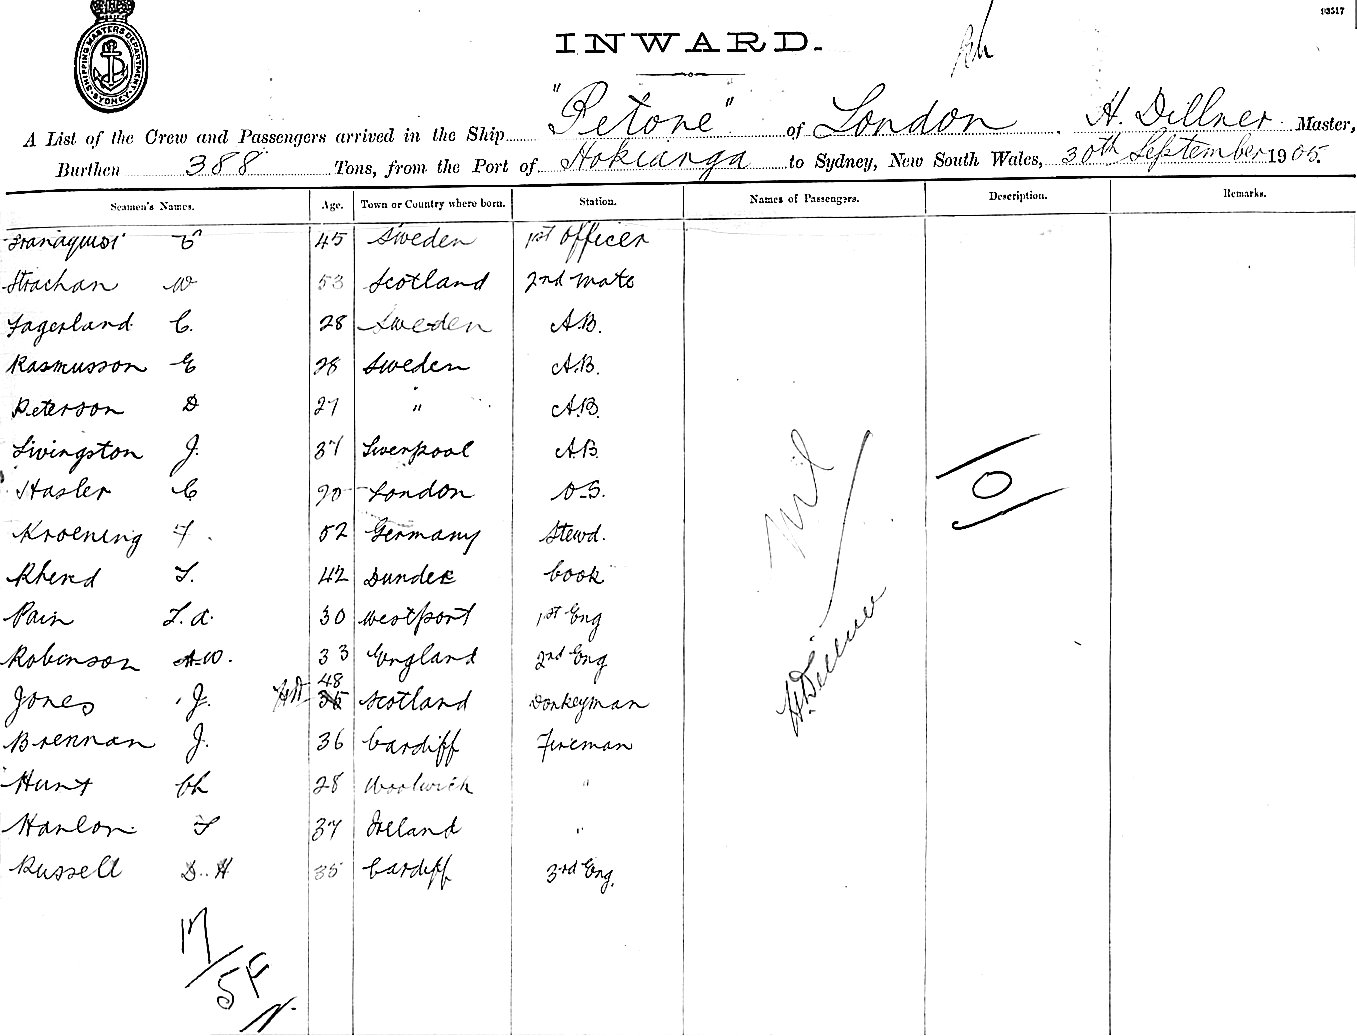 93517
SHIPPING MASTERS DEPARTMENT
SYDNEY
INWARD.
A List of the Crew and Passengers arrived in the Ship "Petone" of London H. Dillner Master,
Burthen 388 Tons, from the Port of Hokianga to Sydney, New South Wales, 30th September 1905.
Seamen's Names. Age. Town or Country where born. Station. Names of Passengers. Description. Remarks.
45 Sweden 1st Officer
Strachan W 53 Scotland 2nd Mate
Fagerland C. 28 Sweden A.B.
Rasmusson E 28 Sweden A.B.
Peterson D 27 " A.B.
Livingston J. 37 Liverpool A.B.
Hasler C 20 London O.S.
Kroening F. 52 Germany Stewd.
Rhend T. 42 Dundee Cook
Pain F. A. 30 Westport 1st Eng
Robinson A.W. 33 England 2nd Eng
48
Jones J. HD 35 Scotland Donkeyman
Brennan J. 36 Cardiff Fireman
Hunt Ch 28 Woolwich "
Hanlon T 37 Ireland "
Russell D. H 35 Cardiff 3rd Eng.
Nil
H. Dillner
0
17
5F